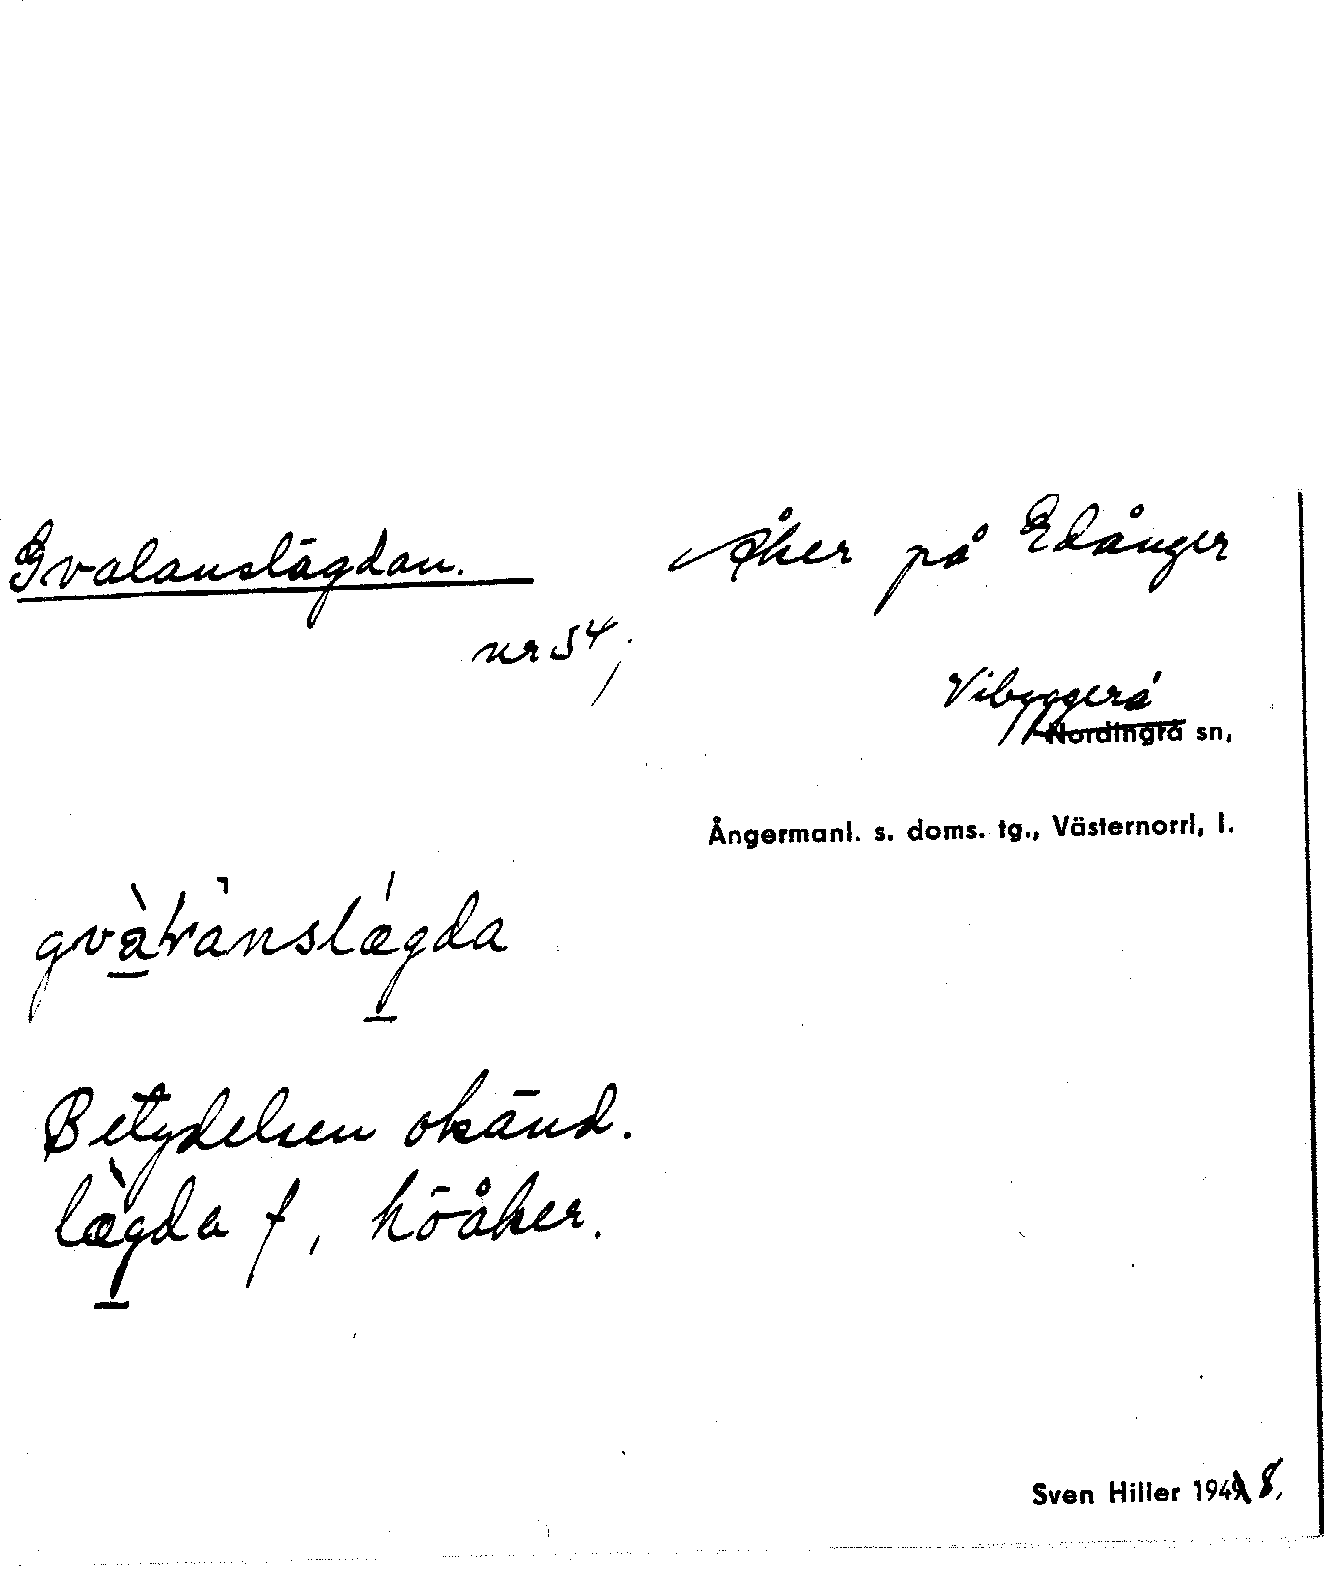 Gvalanslägdan. Åker på Edånger
nr 54;
Vibyggerå
Nordingrå sn,
Ångermanl. s. doms. tg., Västernorrl, l.
gvàƚanslǽgda
Betydelsen okänd.
læ̀gda f, höåker.
Sven Hiller 1948,